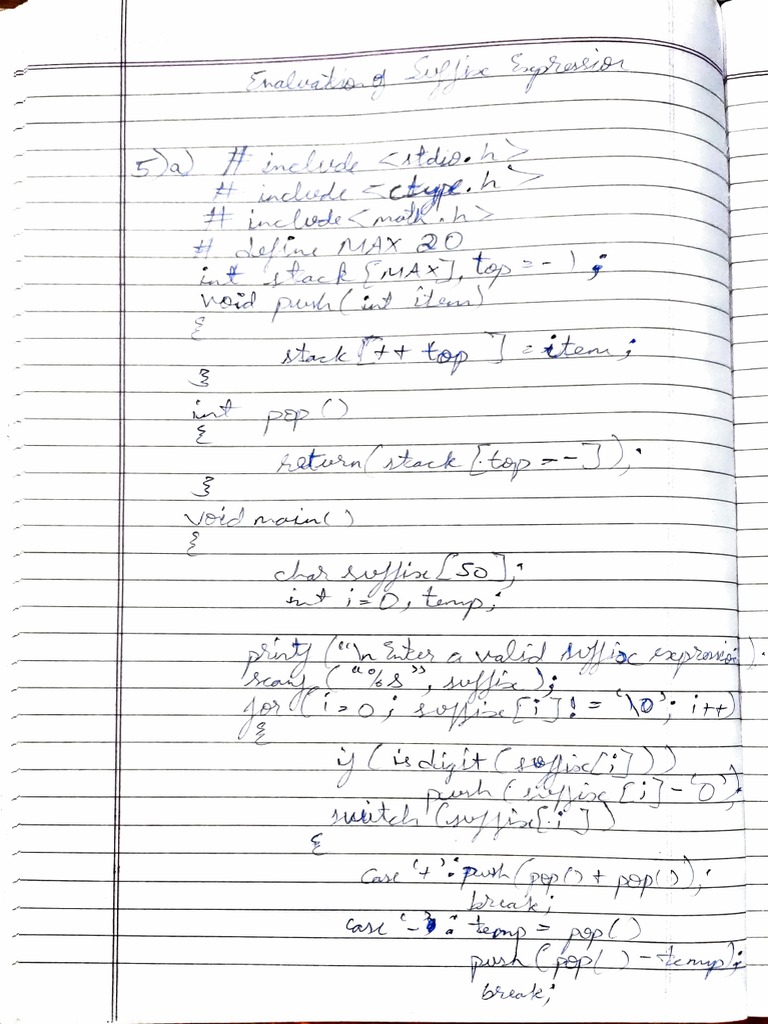 Evaluation of Suffix Expression
5)a) # include <stdio.h>
# include <ctype.h>
# include <math.h>
# define MAX 20
int stack [MAX], top = -1 ;
void push( int item)
{
stack [++ top ] = item ;
}
int pop ()
{
return( stack [top --]);
}
void main ()
{
char suffix [50];
int i=0, temp;
printf ("\n Enter a valid suffix expression ) .
scanf ("%s", suffix );
for (i = 0 ; suffix [i] != '\0'; i++)
{
if ( isdigit ( suffix[i] ))
push ( suffix [i] - '0');
switch (suffix[i])
{
case '+' : push (pop() + pop());
break;
case '-' : temp = pop()
push (pop() - temp);
break;